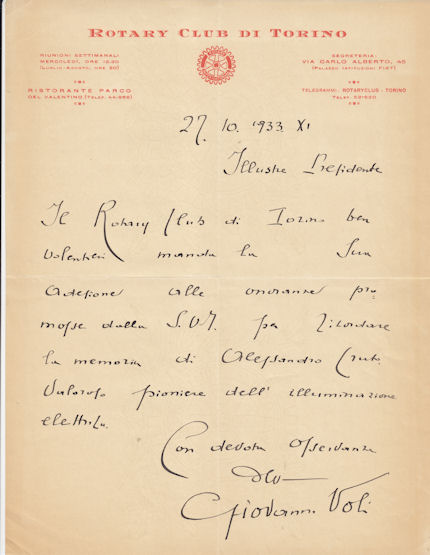 ROTARY CLUB DI TORINO
RIUNIONI SETTIMANALI
MERCOLEDÌ, ORE 12.30
(LUGLIO-AGOSTO, ORE 20)
RISTORANTE PARCO
DEL VALENTINO (TELEF. 44-668)
SEGRETERIA:
VIA CARLO ALBERTO, 45
(PALAZZO ISTITUZIONI FIAT)
TELEGRAMMI: ROTARYCLUB - TORINO
TELEF. 52-520
27. 10. 1933. XI
Illustre Presidente
Il Rotary Club di Torino ben
volentieri manda la Sua
adesione alle onoranze pro
mosse dalla S.V.I. per ricordare
la memoria di Alessandro Cruto
valoroso pioniere dell' illuminazione
elettrica.
Con devota osservanza
Giovanni Voli